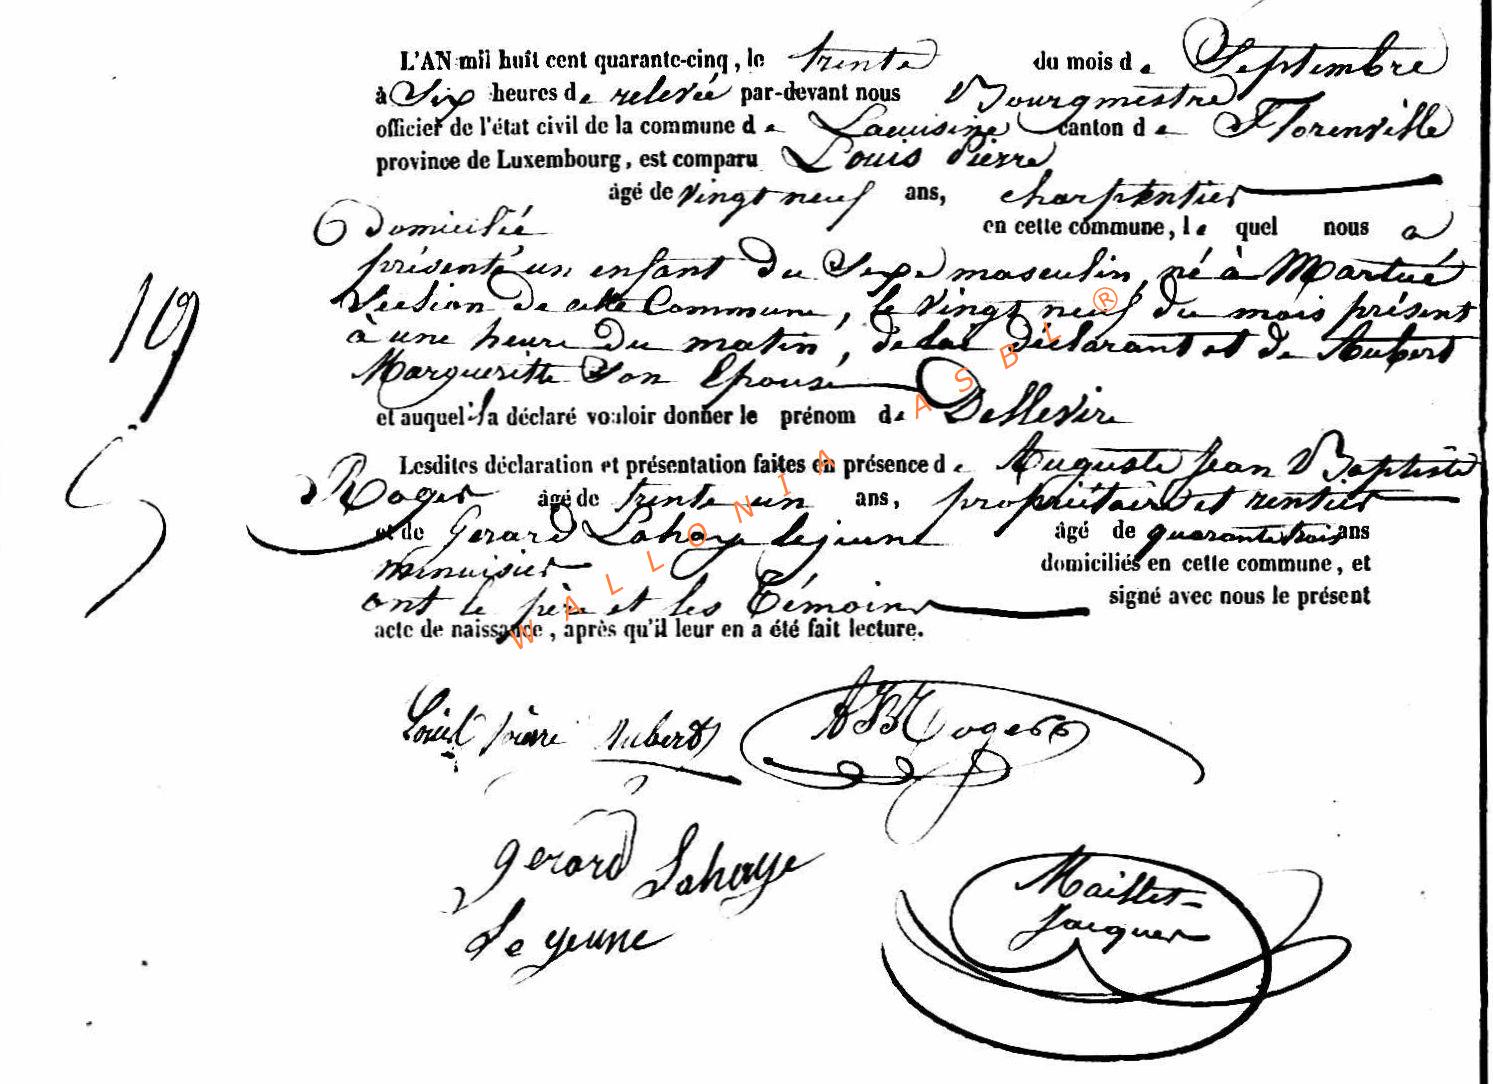 L'AN mil huit cent quarante-cinq, le trente du mois de Septembre
à Six heures de relevée par-devant nous Bourgmestre
officier de l'état civil de la commune de Lacuisine canton de Florenville
province de Luxembourg, est comparu Louis Pierre
âgé de vingt neuf ans, charpentier
Domicilié en cette commune, le quel nous a
présenté un enfant du Sexe masculin, né à Martué
Section de cette Commune, le vingt neuf du mois présent
à une heure du matin, de lui déclarant et de Aubert
Margueritte Son Epouse
et auquel il a déclaré vouloir donner le prénom de Dellevire
Lesdites déclaration et présentation faites en présence de Auguste Jean Baptiste
Roger âgé de trente un ans, propriétaire et rentier
et de Gerard Lahaye lejeune âgé de quarante trois ans
menuisier domiciliés en cette commune, et
ont le père et les Témoins signé avec nous le présent
acte de naissance, après qu'il leur en a été fait lecture.
19
Louis pierre Aubert
AJB Roger
gerard Lahaye
Le yeune
Maillet-
Jacques
WALLONIA ASBL ®